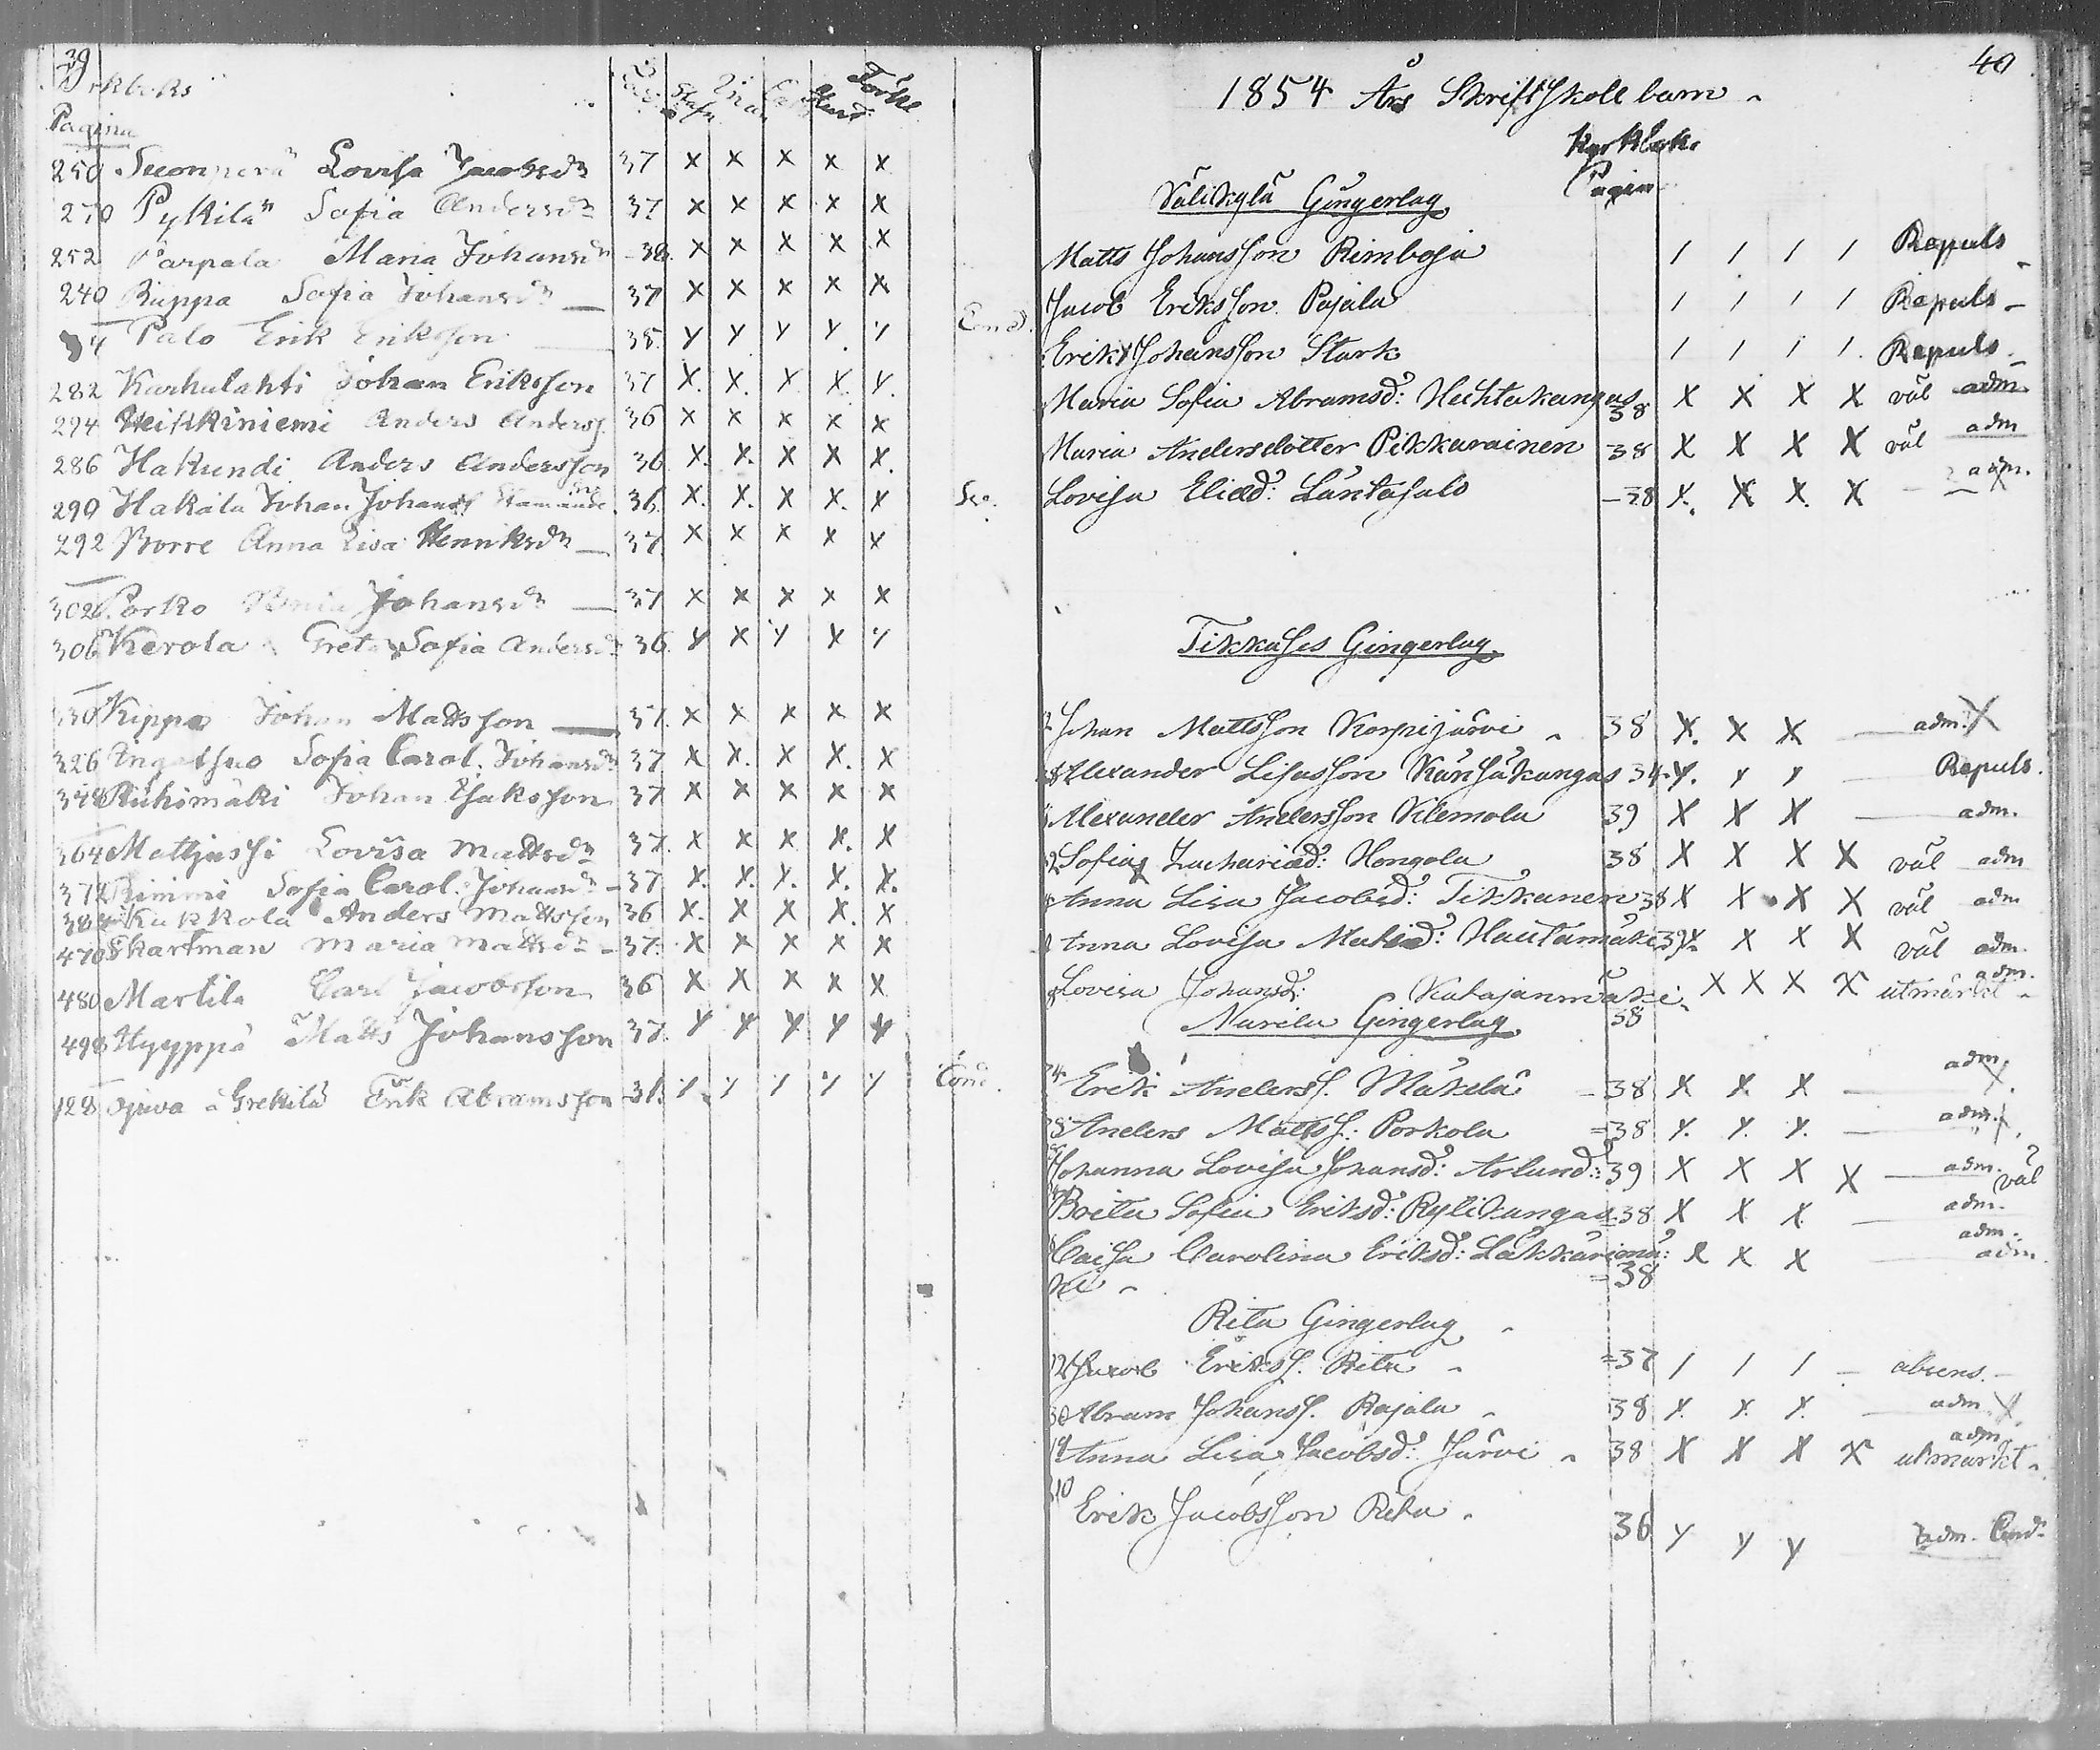 39
Pagina Förkl
250 Lovisa Jacobsdr 37 x x x x x
270 Pykilä Sofia Andersdr 37 x x x x x
252 Parpala Maria Johansdr 38 x x x x x
240 Riippa Sofia Johansdr 37 x x x x x
Palo Erik Eriksson 38 y y y y y Cond.
282 Karhulahti Johan Eriksson 37 x x x x x
294 Heikkiniemi Anders Anderss. 36 x x x x x
286 Hakundi Anders Andersson 36 x x x x x
290 Hakala Johan Johans 36 x x x x x
292 Norre Anna Lisa Henriksdr 37 x x x x x
302 Porko Johansdr 37 x x x x x
306 Kerola Greta Sofia Andersdr 36 y x y x y
330 Kippo Johan Mattsson 37 x x x x x
326 Sofia Carol. Johansdr 37 x x x x x
Riihimäki Johan Isaksson 37 x x x x x
364 Mattjussi Lovisa Mattsdr 37 x x x x x
Rimmi Sofia Carol. Johansdr 37 x x x x x
384 Kukkola Anders Mattsson 36 x x x x x
470 Skartman Maria Mattsdr 37 x x x x x
480 Martila Carl Jacobsson 36 x x x x x
498 Hyyppä Matts Johansson 37 y y y y y
128 Ojwa a Grekilä Erik Abramsson 31 y y y y y Cond.
40
1854 Års Skriftskolbarn
Kyrkbok.
Pagin
Välikylä Gingerlag
Matts Johansson Rimboja / / / / Repuls
Jacob Eriksson Pajala / / / / Repuls
Erik Johansson Stark / / / / Repuls
Maria Sofia Abramsd: Hechtakangas 38 x x x x väl adm
Maria Andersdotter Pikkarainen 38 x x x x väl adm
Lovisa Eliæd: Läntasalo 38 x x x x adm.
Tikkases Gingerlag
Johan Mattsson Korpijärvi 38 x x x — adm. x
Alexander Lisasson Känsäkangas 34 y. y y — Repuls.
Alexander Andersson Klemola 39 x x x — adm.
Sofia Zachariæd: Hongola 38 x x x x väl adm
Anna Lisa Jacobsd: Tikkanen 38 x x x x väl adm
Anna Lovisa Matsd: Hautamäki 39 x x x x väl adm.
Lovisa Johansd: Katajanmäki x x x x utmärkt adm.
Narila Gingerlag 38
Erik Anderss. Mäkelä 38 x x x — adm. x
Anders Mattss: Porkola 38 y. y. y. — adm.
Johanna Lovisa Johansd: Arlund: 39 x x x x — adm. väl
Brita Sofia Eriksd: Rylikangas 38 x x x — adm.
Caisa Carolina Eriksd: Läkkärimä: x x x adm. adm
ki 38
Rita Gingerlag
Jacob Erikss. Rita 37 / / / — absens.
Abram Johanss. Rajala 38 y. y. y. — adm x
Anna Lisa Jacobsd: Järvi 38 x x x x utmärkt adm.
Erik Jacobsson Rita 36 y y y adm. Cond.